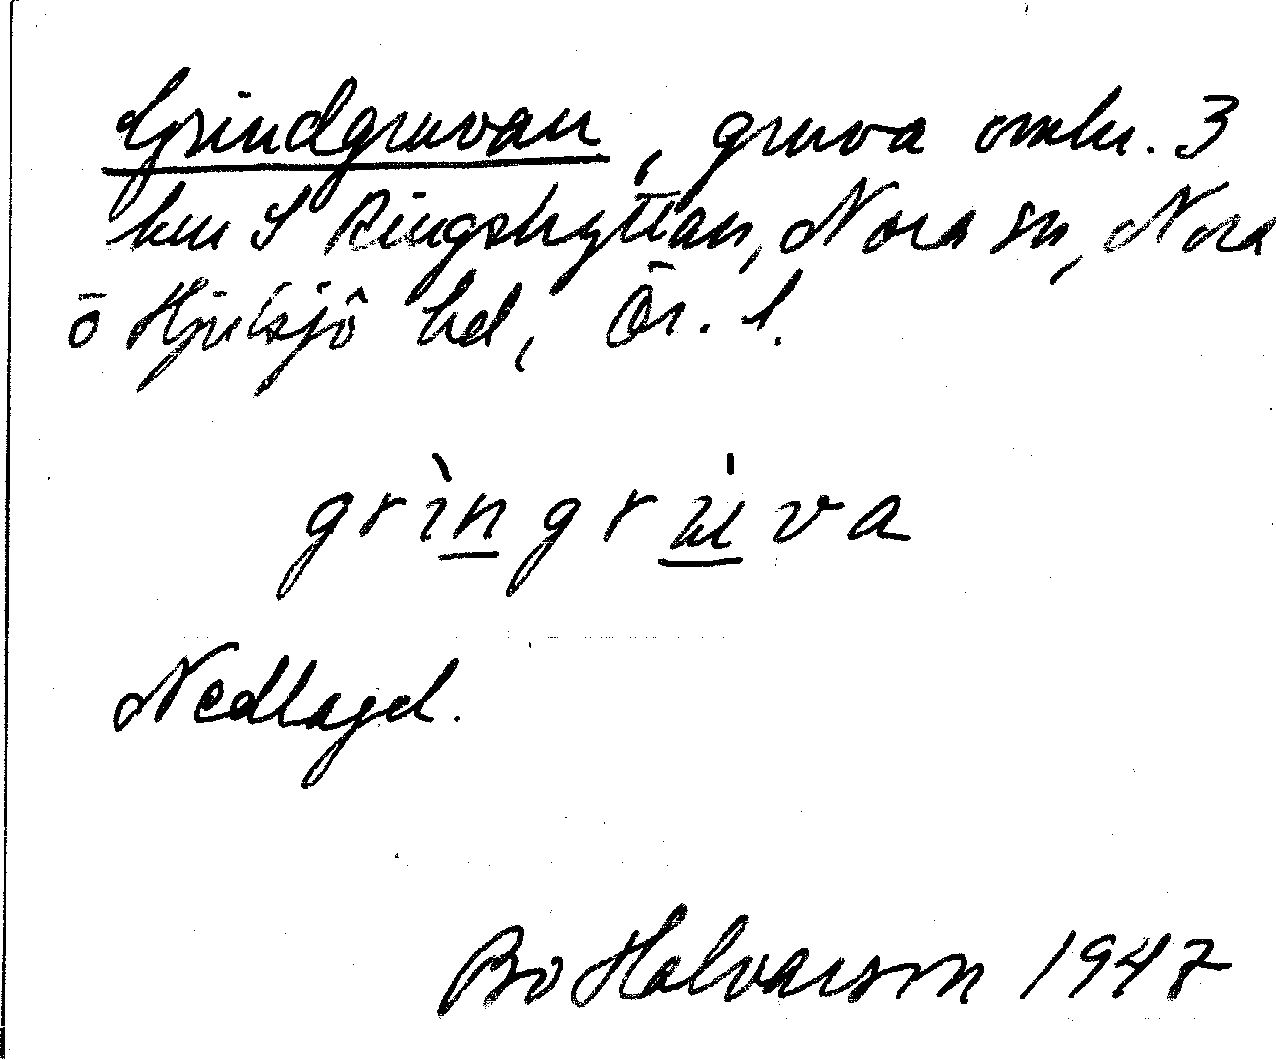 Grindgruvan, gruva omkr. 3
km S Ringshyttan, Nora sn, Nora
o Hjulsjö hd, Ör. l.
grìngrúva
Nedlagd.
Bo Halvarson 1947